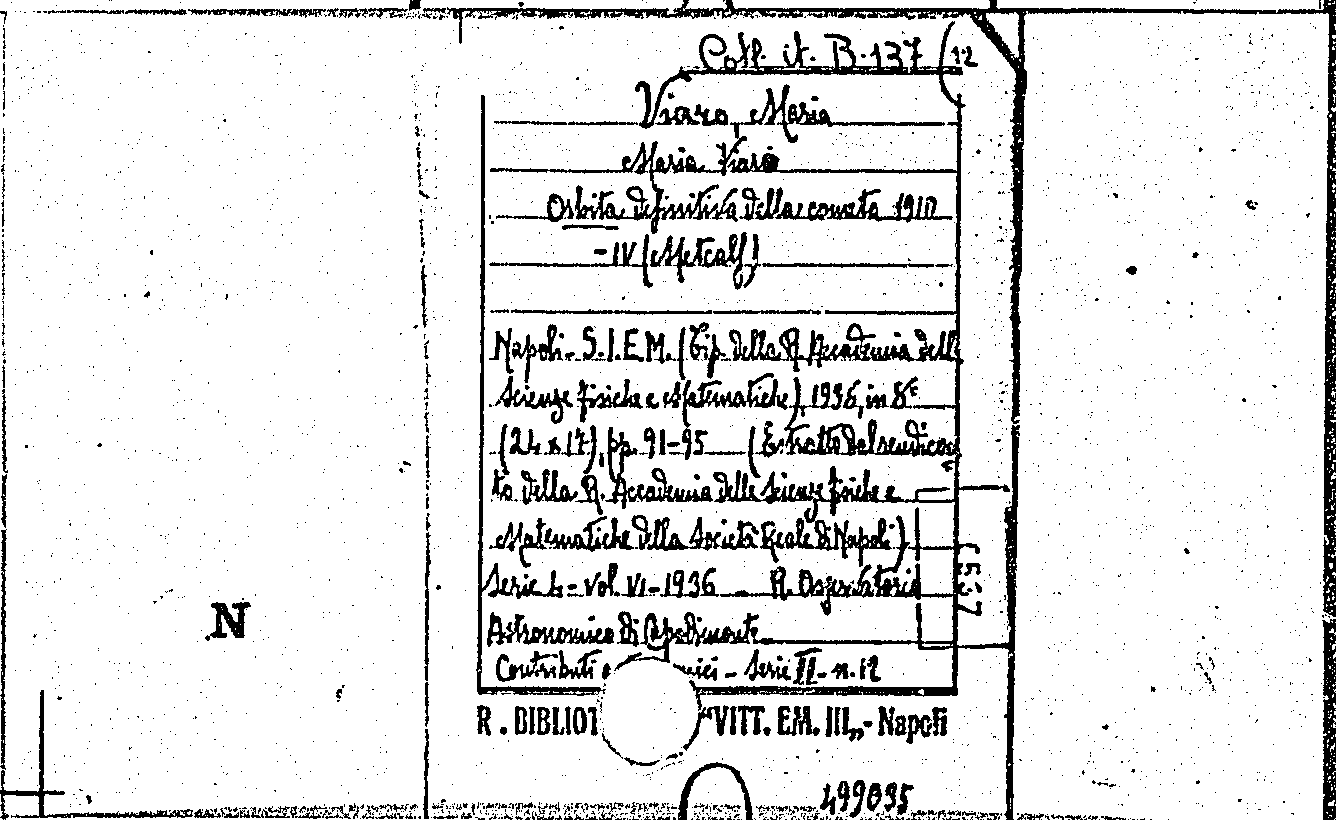 Coll. it. B. 137 (12
Viaro, Maria
Maria Viaro
Orbita definitiva della cometa 1910
- IV (Metcalf)
Napoli - S.I.E.M. (Tip. della R. Accademia delle
Scienze fisiche e Matematiche), 1936, in 8°
(24 x 17), pp. 91-95 (Estratto dal rendicon
to della R. Accademia delle Scienze fisiche e
Matematiche della Società Reale di Napoli)
Serie 4 - Vol. VI - 1936 - R. Osservatorio
Astronomico di Capodimonte
Contributi mici - Serie II - n. 12
R. BIBLIOT "VITT. EM. III„ - Napoli
499095
N